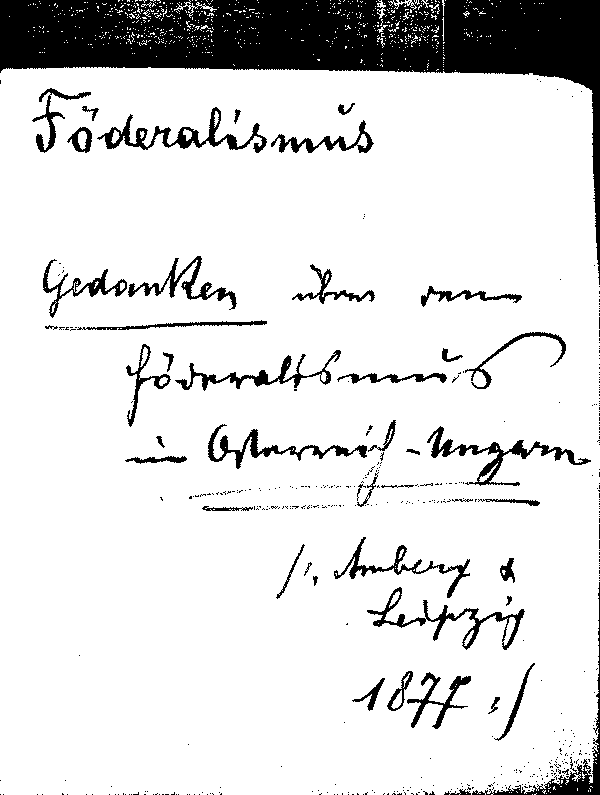 Föderalismus
Gedanken über den
Föderalismus
in Österreich-Ungarn
/:, Amberg &
Leipzig
1877 :/